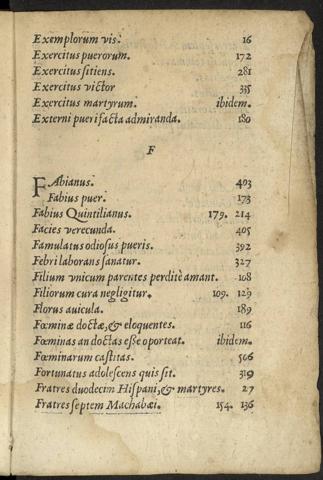 Exemplorum vis. 16
Exercitus puerorum. 172
Exercitus ſitiens. 281
Exercitus victor 335
Exercitus martyrum. ibidem.
Externi pueri facta admiranda. 180
F
FAbianus. 403
Fabius puer. 173
Fabius Quintilianus. 179. 214
Facies verecunda. 405
Famulatus odioſus pueris. 392
Febri laborans ſanatur. 327
Filium vnicum parentes perditè amant. 108
Filiorum cura negligitur. 109. 129
Florus auicula. 189
Fœminæ doctæ, & eloquentes. 116
Fœminas an doctas eſſe oporteat. ibidem.
Fœminarum caſtitas. 506
Fortunatus adoleſcens quis ſit. 319
Fratres duodecim Hiſpani, & martyres. 27
Fratres ſeptem Machabæi. 154. 136